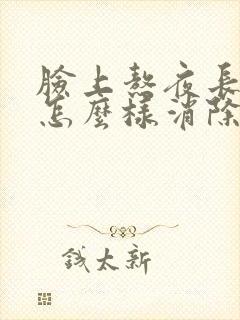 臉上熬夜長
怎麼樣消除
錢太新